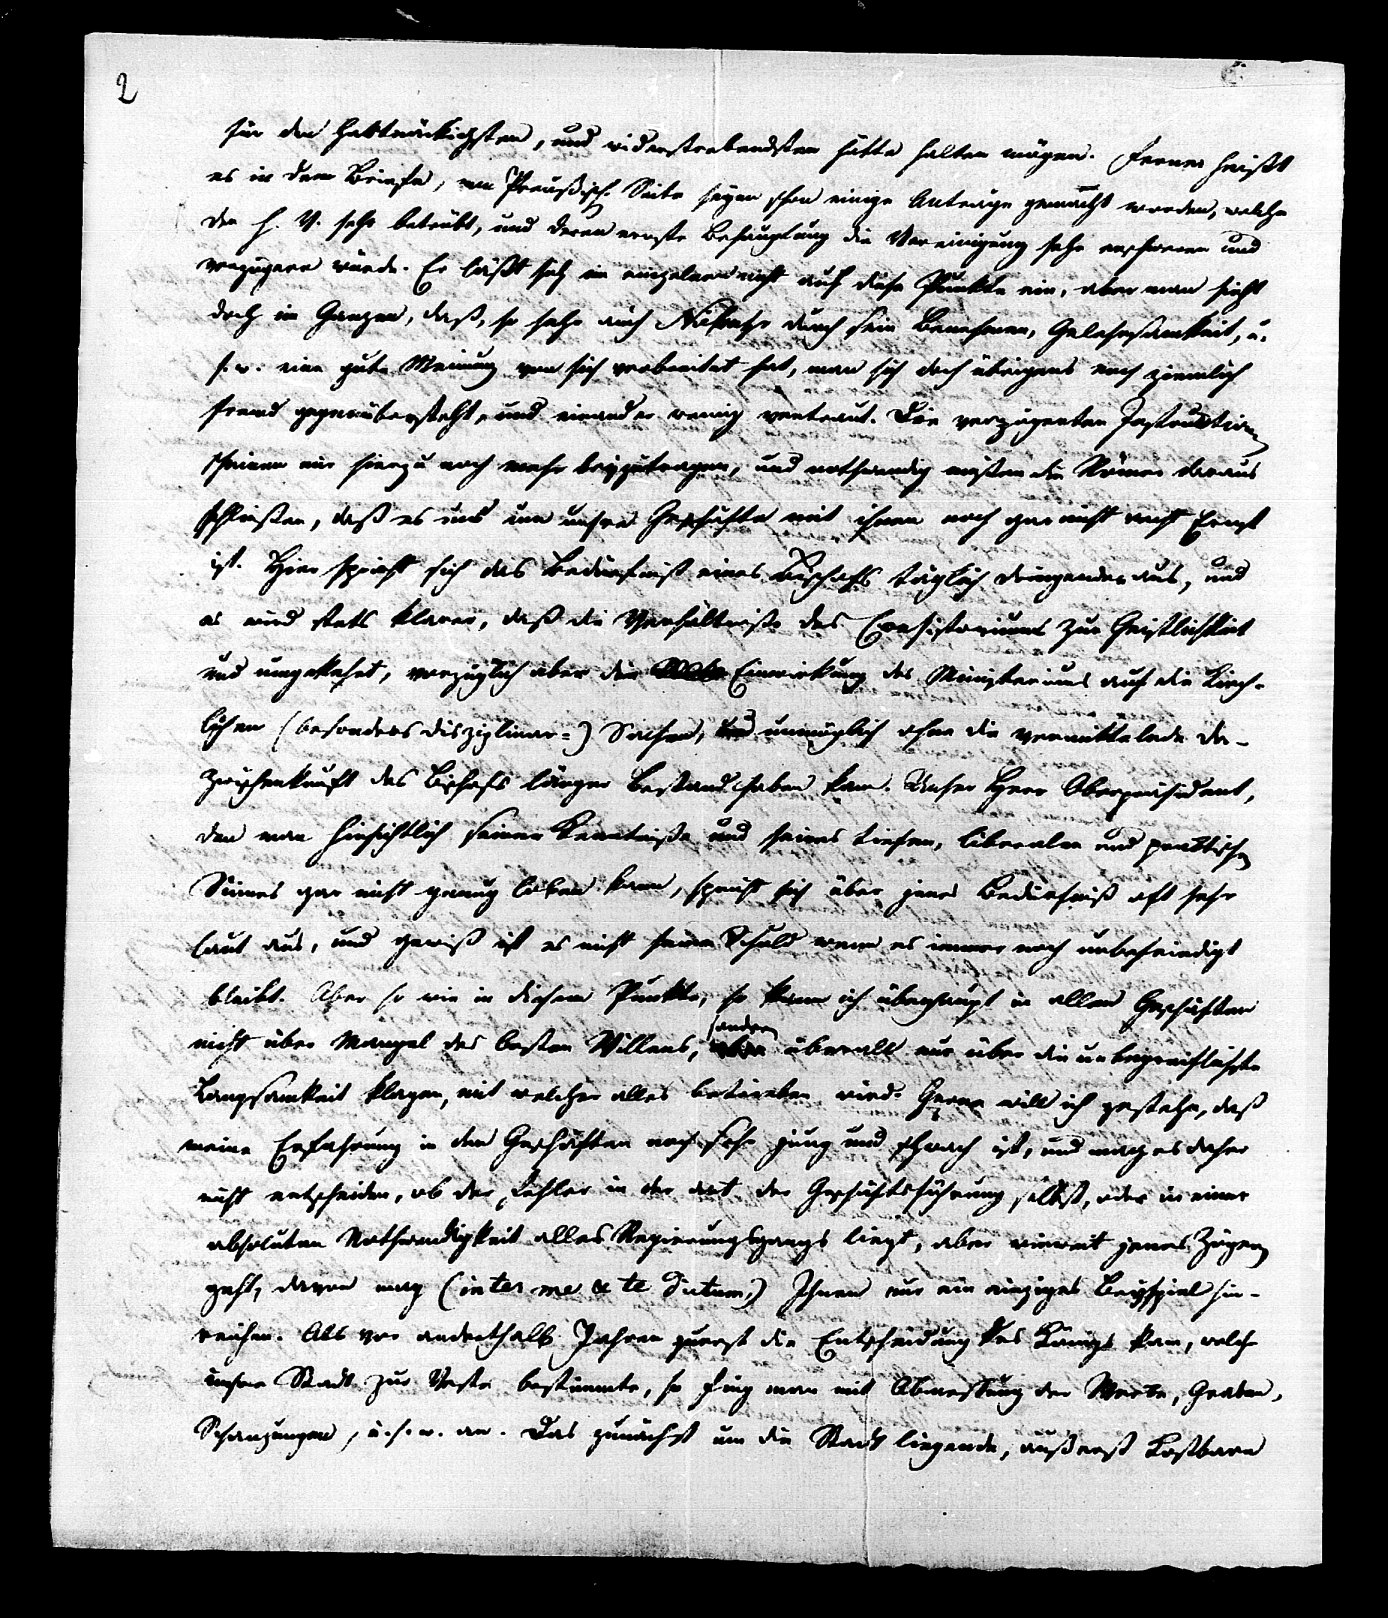 2
für den hartnäckigsten, und widerstrebendsten hätte halten mögen. Ferner heißt
es in dem Briefe, von Preußisch. Seite seyen schon einige Anträge gemacht worden, welche
den h. V. sehr betrübt, und deren ernste Behauptung die Vereinigung sehr erschweren und
verzögern würde. Er läßt sich im einzelnen nicht auf diese Punkte ein, aber man sieht
doch im Ganzen, daß, so sehr auch Niebuhr durch sein Benehmen, Gelehrsamkeit, u.
s. w. eine gute Meinung von sich verbreitet hat, man sich doch übrigens noch ziemlich
fremd gegenübersteht, und einander wenig vertraut. Die verzögerten Instruktionen
scheinen mir hierzu noch mehr beyzutragen, und nothwendig müßen die Römer daraus
schließen, daß es uns um unsre Geschäfte mit ihnen noch gar nicht recht Ernst
ist. Hier spricht sich das Bedürfniß eines Bischofs täglich dringender aus, und
es wird stets klarer, daß die Verhältniße des Consistoriums zur Geistlichkeit
und umgekehrt, vorzüglich aber die Einwirkung des Ministeriums auf die Kirch-
lichen (besonders disziplinar=) Sachen, unmöglich ohne die vermittelnde Da-
zwischenkunft des Bischofs länger Bestand haben kann. Unser Herr Oberpräsident,
den man hinsichtlich seiner Kenntniße und seines tiefen, liberalen und praktischen
Sinnes gar nicht genug loben kann, spricht sich über jenes Bedürfniß oft sehr
laut aus, und gewiß ist es nicht seine Schuld wenn es immer noch unbefriedigt
bleibt. Aber so wie in diesem Punkte, so kann ich überhaupt in allen Geschäften
nicht über Mangel des besten Willens, sondern überall nur über die unbegreiflichste
Langsamkeit klagen, mit welcher alles betrieben wird. Gerne will ich gestehn, daß
meine Erfahrung in den Geschäften noch sehr jung und schwach ist, und mag es daher
nicht entscheiden, ob der Fehler in der Art der Geschäftsführung selbst, oder in einer
absoluten Nothwendigkeit alles Regierungsgangs liegt, aber wieweit jenes Zögern
geht, davon mag (inter me & te dictum,) Ihnen nur ein einziges Beyspiel hin-
reichen. Als vor anderthalb Jahren zuerst die Entscheidung des Königs kam, welche
unsre Stadt zur Veste bestimmte, so fing man mit Abmessung der Werke, Graben,
Schanzungen, u. s. w. an. Das zunächst um die Stadt liegende, äußerst kostbare